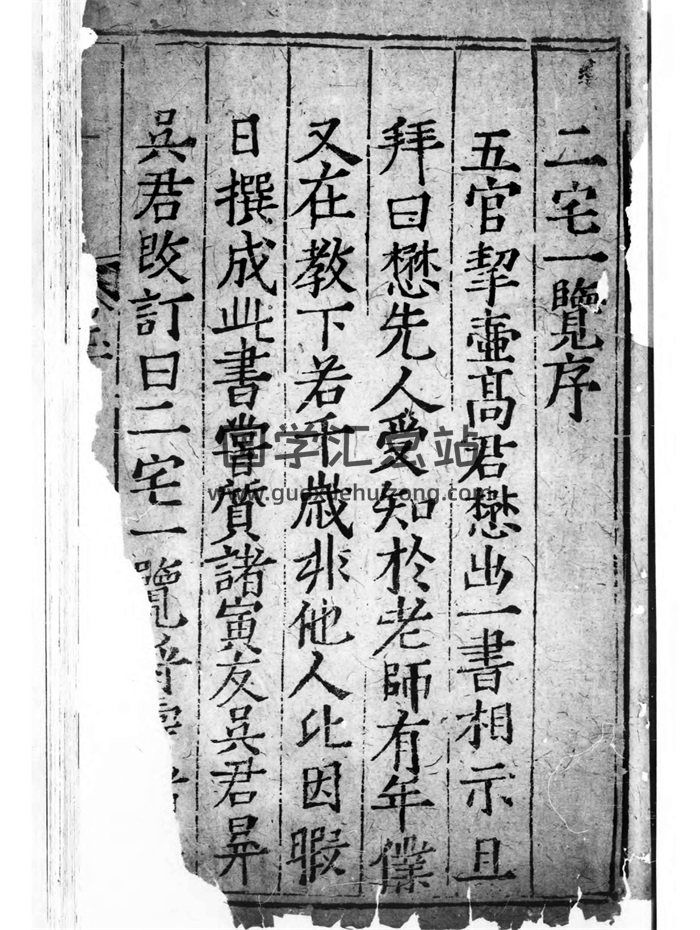 二宅一覽序
五官挈壷髙君懋出一書相示且
拜曰懋先人受知於老師有年僕
又在教下若干歲非他人比因暇
日撰成此書嘗質諸寅友吳君昇
吳君改訂曰二宅一覽
国学汇总站
www.guoxuehuizong.com